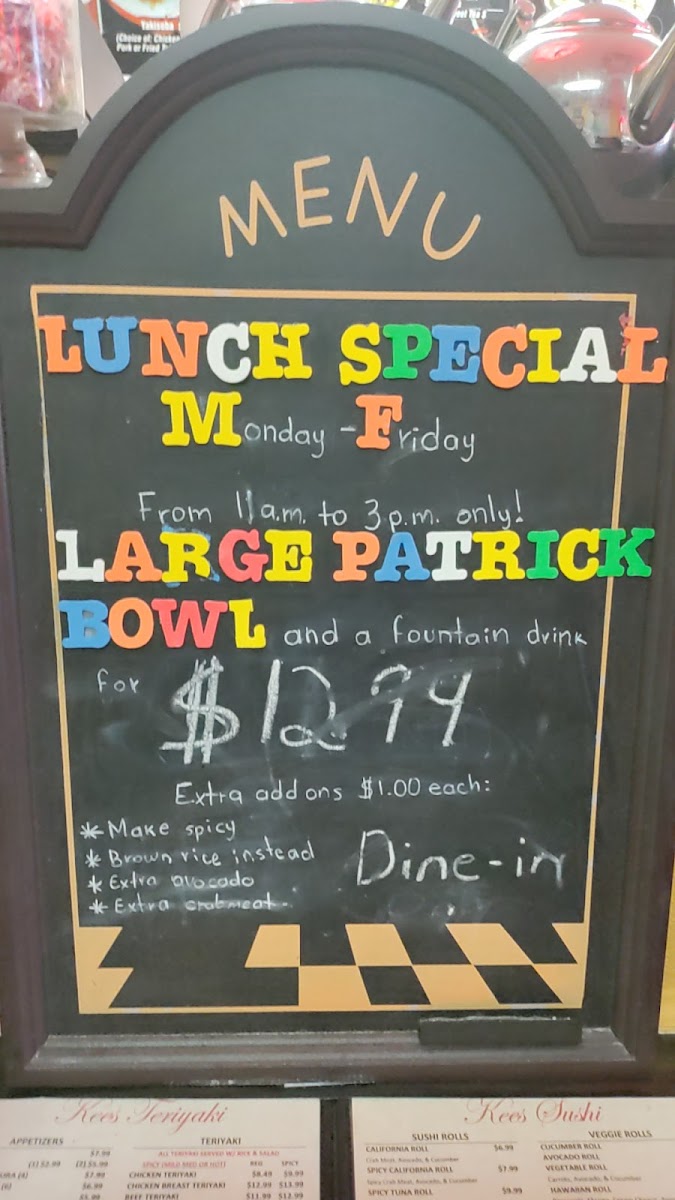 Yakisoba
(Choice of: Chicken
Pork or Fried
MENU
LUNCH SPECIAL
Monday - Friday
From 11a.m. to 3p.m. only!
LARGE PATRICK
BOWL and a fountain drink
for $12.94
Extra add ons $1.00 each:
* Make spicy
* Brown rice instead
* Extra avocado
* Extra crabmeat
Dine-in
Kees Teriyaki
APPETIZERS
$7.99
(1) $2.99 (2) $5.99
$7.99
(6) $6.99
$5.99
TERIYAKI
ALL TERIYAKI SERVED W/ RICE & SALAD
SPICY (MILD MED OR HOT) REG SPICY
CHICKEN TERIYAKI $8.49 $9.99
CHICKEN BREAST TERIYAKI $12.99 $13.99
BEEF TERIYAKI $11.99 $12.99
Kees Sushi
SUSHI ROLLS
CALIFORNIA ROLL $6.99
Crab Meat, Avocado, & Cucumber
SPICY CALIFORNIA ROLL $7.99
Spicy Crab Meat, Avocado, & Cucumber
SPICY TUNA ROLL $9.99
VEGGIE ROLLS
CUCUMBER ROLL
AVOCADO ROLL
VEGETABLE ROLL
Carrots, Avocado, & Cucumber
HAWAIIAN ROLL